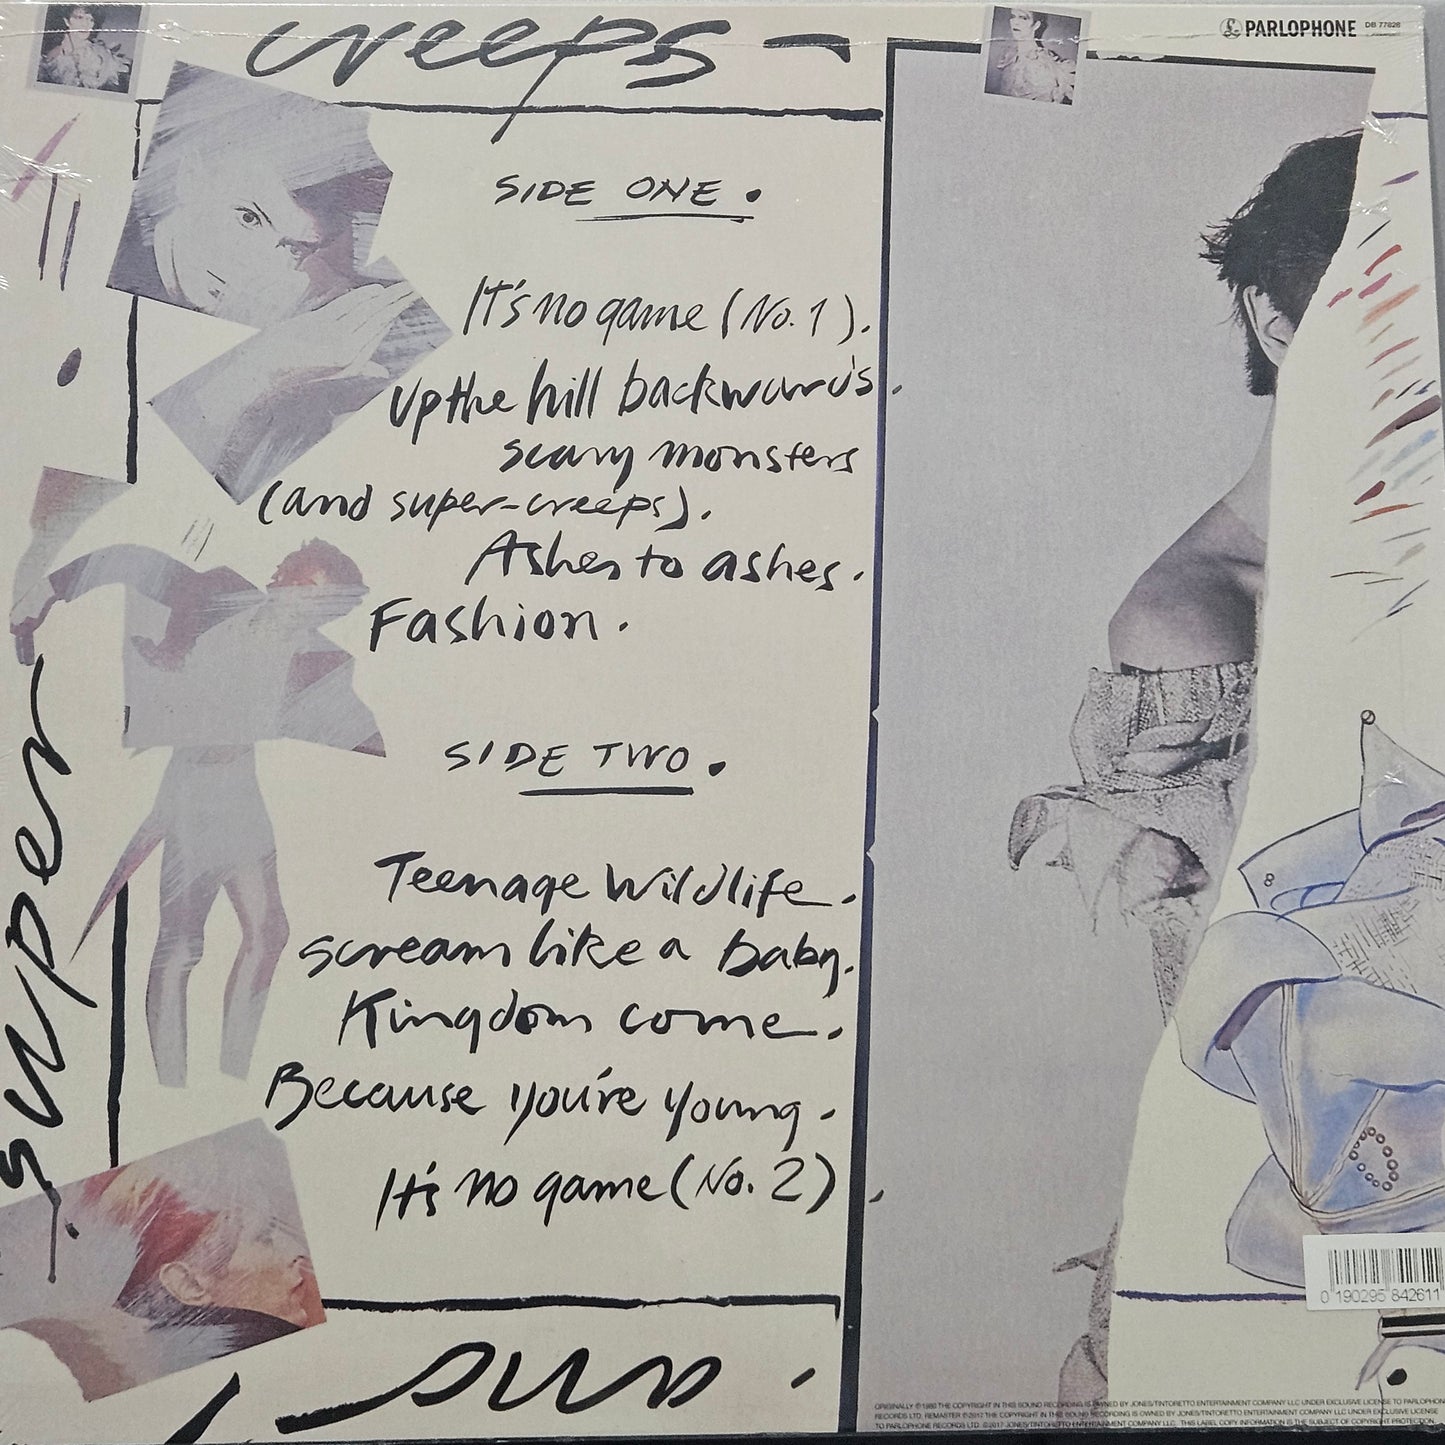 creeps -
PARLOPHONE DB 77828
SIDE ONE.
It's no game (No. 1).
up the hill backwards.
scary monsters
(and super-creeps).
Ashes to ashes.
Fashion.
SIDE TWO.
Teenage Wildlife.
scream like a baby.
Kingdom come.
Because you're young.
It's no game (No. 2).
super
0 190295 842611
ORIGINALLY ℗ 1980 THE COPYRIGHT IN THIS SOUND RECORDING IS OWNED BY JONES/TINTORETTO ENTERTAINMENT COMPANY LLC UNDER EXCLUSIVE LICENSE TO PARLOPHONE
RECORDS LTD. REMASTER ℗ 2017 THE COPYRIGHT IN THIS SOUND RECORDING IS OWNED BY JONES/TINTORETTO ENTERTAINMENT COMPANY LLC UNDER EXCLUSIVE LICENSE
TO PARLOPHONE RECORDS LTD. © 2017 JONES/TINTORETTO ENTERTAINMENT COMPANY LLC. THIS LABEL COPY INFORMATION IS THE SUBJECT OF COPYRIGHT PROTECTION.